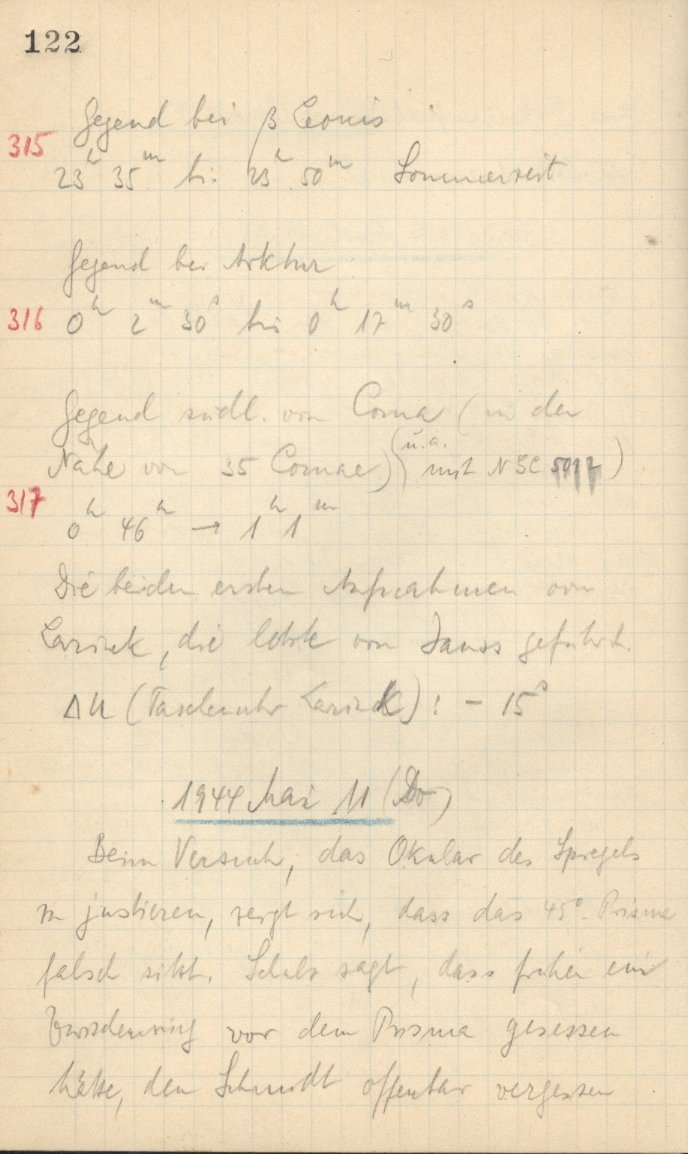 122
Gegend bei β Leonis
315
23h 35m bis 23h 50m Sommerzeit
Gegend bei Arktur
316 0h 2m 30s bis 0h 17m 30s
Gegend südl. von Coma (in der
Nähe von 35 Comae) (u.a. mit NGC 5012)
317
0h 46m → 1h 1m
Die beiden ersten Aufnahmen von
die letzte von geführt.
ΔU (Taschenuhr): - 15s
1944 Mai 11 (Do)
Beim Versuch, das Okular des Spiegels
zu justieren, zeigt sich, dass das 45°-Prisma
falsch sitzt. sagt, dass früher ein
Zwischenring vor dem Prisma gesessen
hätte, den Schmidt offenbar vergessen